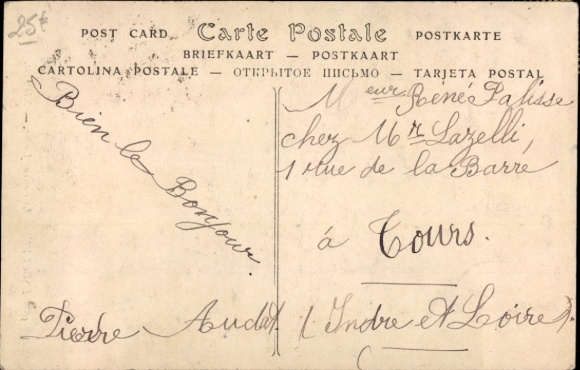 25€
POST CARD Carte Postale POSTKARTE
BRIEFKAART — POSTKAART
CARTOLINA POSTALE — ОТКРЫТОЕ ПИСЬМО — TARJETA POSTAL
Bien le Bonjour.
Pierre Audat
Meur René Palisse
chez Mr Lazelli,
1 rue de la Barre
à Tours.
(Indre et Loire).